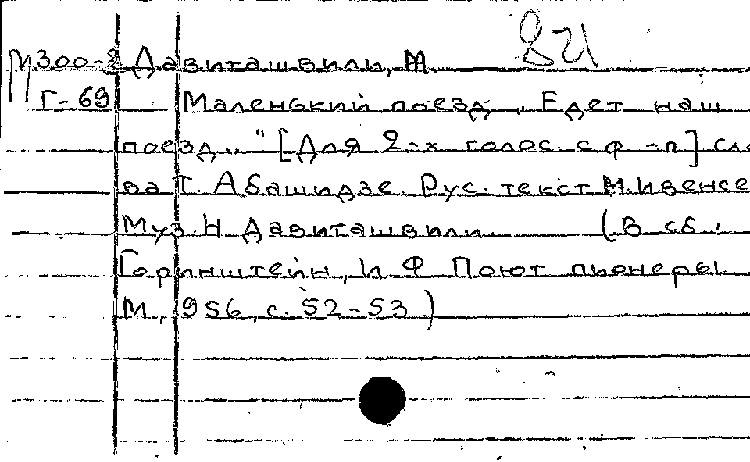 ВИ
М300-2 Давиташвили, М.
Г-69 Маленький поезд „Едет наш
поезд..." [Для 2-х голос. с ф-п] сло
ва Г. Абашидзе. Рус. текст М. Ивенсе
Муз. Н. Давиташвили. (В сб.:
Горинштейн, И. Ф. Поют пионеры.
М., 956, с. 52-53)